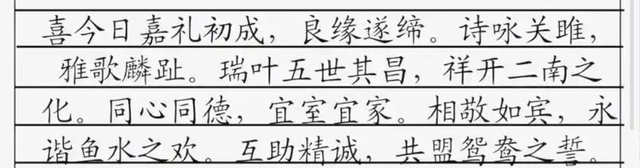 喜今日嘉礼初成，良缘遂缔。诗咏关雎，
雅歌麟趾。瑞叶五世其昌，祥开二南之
化。同心同德，宜室宜家。相敬如宾，永
谐鱼水之欢。互助精诚，共盟鸳鸯之誓。